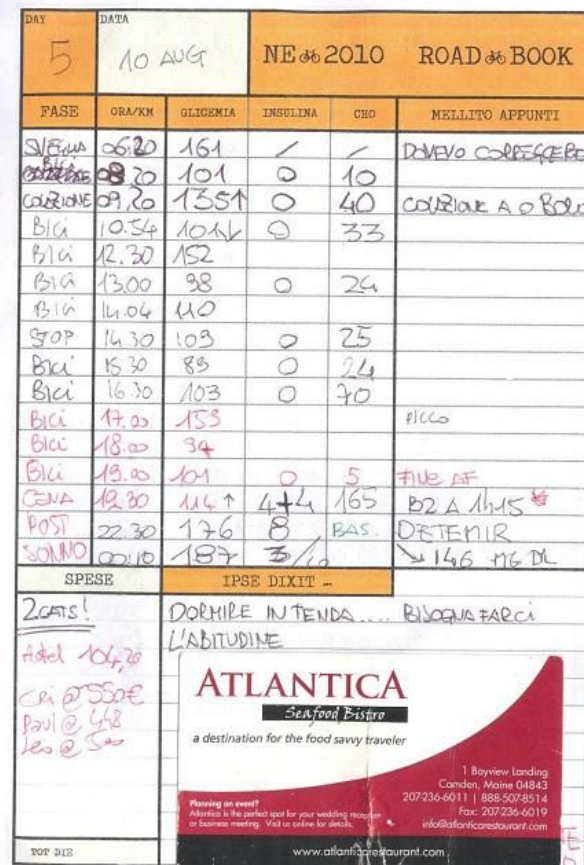 DAY DATA
5 10 AUG NE 2010 ROAD BOOK
FASE ORA/KM GLICEMIA INSULINA CHO MELLITO APPUNTI
SVEGLIA 06.20 161 / / DOVEVO CORREGGERE
BICI 08 20 101 0 10
COLAZIONE 09,20 135↑ 0 40 COLAZIONE A 0 BOLO
BICI 10.54 101↓ 0 33
BICI 12.30 152
BICI 13.00 98 0 24
BICI 14.04 110
STOP 14.30 109 0 25
BICI 15 30 89 0 24
BICI 16.30 103 0 70
BICI 17.00 153 PICCO
BICI 18.00 94
BICI 19.00 101 0 5 FINE AF
CENA 19.30 114↑ 4+4 165 B2 A 1h15
POST 22.30 176 8 BAS. DETEMIR
SONNO 00.10 187 ↘ 146 MG DL
SPESE IPSE DIXIT ...
2 CATS! DORMIRE IN TENDA.... BISOGNA FARCI
L'ABITUDINE
Hotel 104,20
Cri @ 550€
Paul @ 448
Leo @ 500
ATLANTICA
Seafood Bistro
a destination for the food savvy traveler
1 Bayview Landing
Camden, Maine 04843
207-236-6011 | 888-507-8514
Fax: 207-236-6019
info@atlanticarestaurant.com
Planning an event?
Atlantica is the perfect spot for your wedding reception
or business meeting. Visit us online for details.
www.atlanticarestaurant.com
TOT DIE